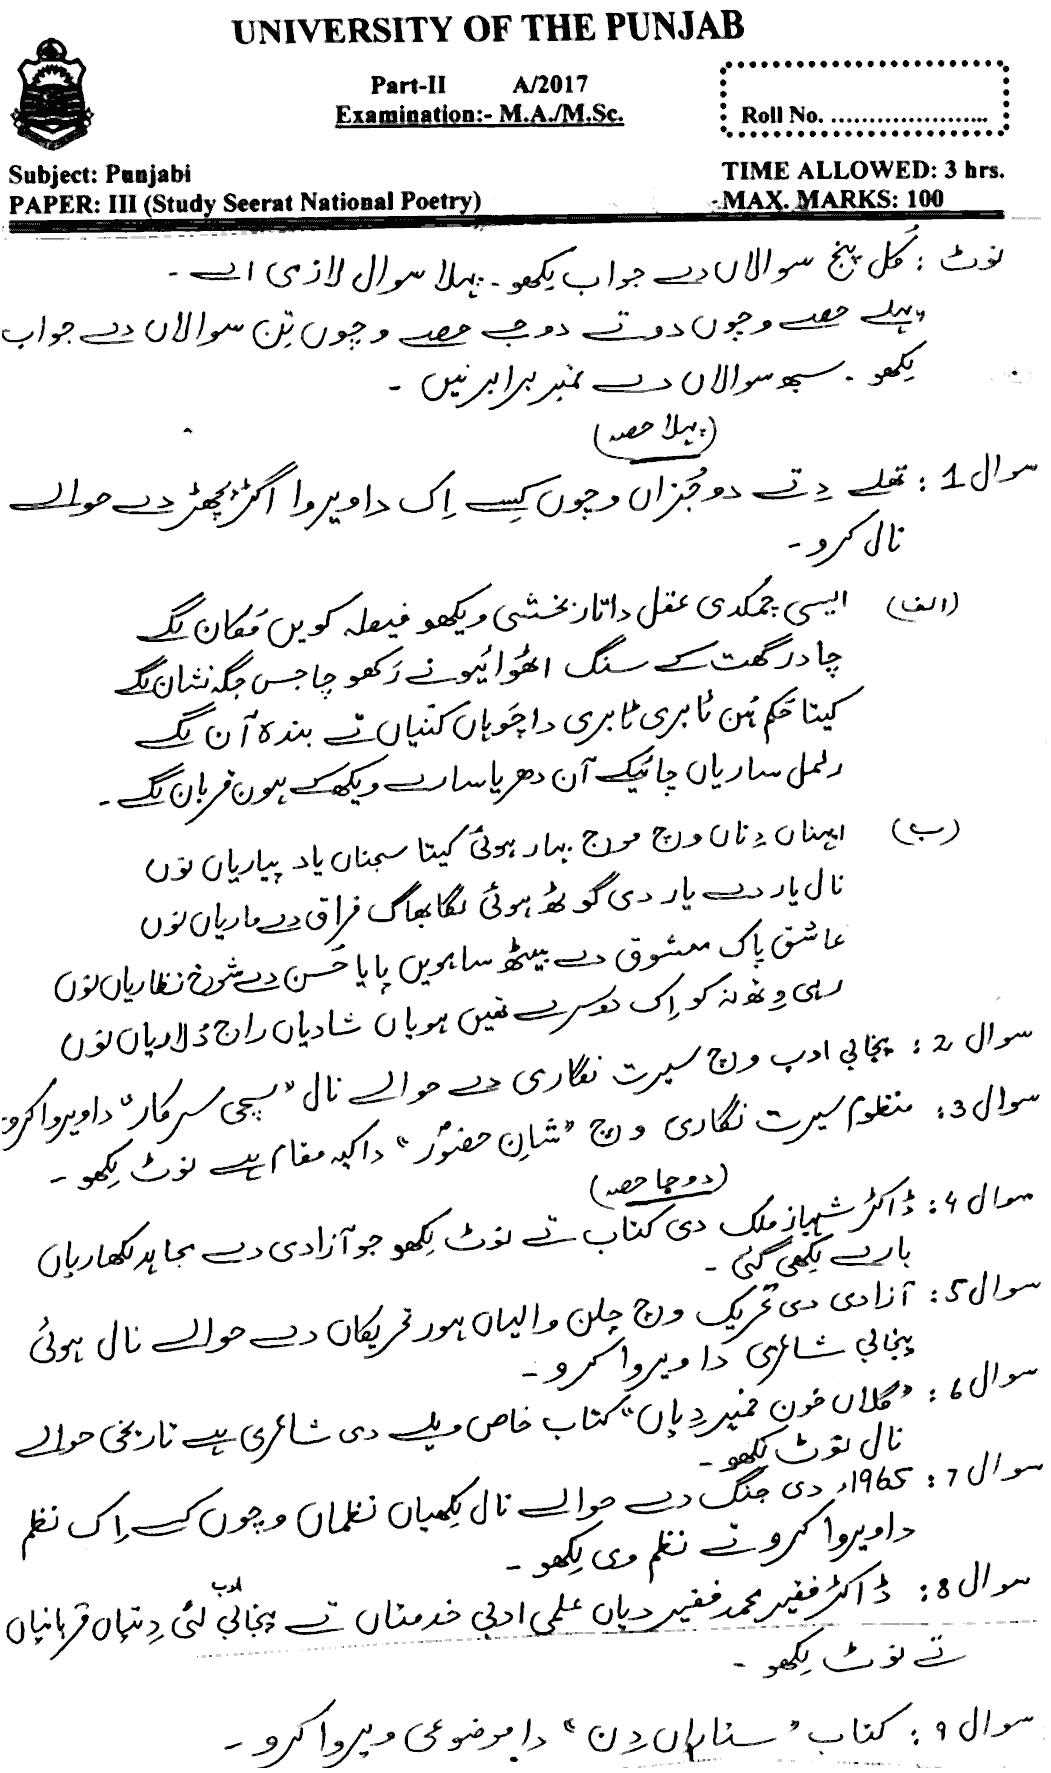 UNIVERSITY OF THE PUNJAB
Part-II A/2017
Examination:- M.A./M.Sc.
Roll No. ......................
Subject: Punjabi
TIME ALLOWED: 3 hrs.
PAPER: III (Study Seerat National Poetry)
MAX. MARKS: 100
نوٹ : کُل پنج سوالاں دے جواب لِکھو۔ پہلا سوال لازمی اے ۔
پہلے حصے وچوں دو تے دوجے حصے وچوں تِن سوالاں دے جواب
لِکھو ۔ سبھ سوالاں دے نمبر برابر نیں ۔
(پہلا حصہ)
سوال 1 : تھلے دِتے دو جُزاں وچوں کِسے اِک دا ویروا اگڑ پچھڑ دے حوالے
نال کرو ۔
(الف) ایسی چمکدی عقل داتار بخشی ویکھو فیصلہ کویں مُکان لگے
چادر گھت کے سنگ اٹھوائیونے رَکھو چا جس جگہ نشان لگے
کیتا حُکم ہُن ٹابری ٹابری دا چوہاں کنیاں تے بندہ آن لگے
رلمل ساریاں چائیکے آن دھریا سارے ویکھ کے ہون قربان لگے ۔
(ب) ایہناں دِناں وچ موج بہار ہوئی کیتا سجناں یاد پیاریاں نوں
نال یار دے یار دی گوٹھ ہوئی لگا بھاگ فراق دے ماریاں نوں
عاشق پاک معشوق دے بیٹھ ساہویں پایا حُسن دے شوخ نظاریاں نوں
رہی وِتھ نہ کو اِک دوسرے تھیں ہویاں شادیاں راج دُلاریاں نوں
سوال 2 : پنجابی ادب وچ سیرت نگاری دے حوالے نال "سچی سرکار" دا ویروا کرو۔
سوال 3 : منظوم سیرت نگاری وچ "شانِ حضورؐ" دا کیہ مقام ہے نوٹ لِکھو ۔
(دوجا حصہ)
سوال 4 : ڈاکٹر شہباز ملک دی کتاب تے نوٹ لِکھو جو آزادی دے مجاہد لکھاریاں
بارے لِکھی گئی ۔
سوال 5 : آزادی دی تحریک وچ چلن والیاں ہور تحریکاں دے حوالے نال ہوئی
پنجابی شاعری دا ویروا کرو ۔
سوال 6 : "گلاں خون ضمیر دیاں" کتاب خاص ویلے دی شاعری ہے تاریخی حوالے
نال نوٹ لِکھو ۔
سوال 7 : 1965ء دی جنگ دے حوالے نال لِکھیاں نظماں وچوں کسے اِک نظم
دا ویروا کرو تے نظم وی لِکھو ۔
سوال 8 : ڈاکٹر فقیر محمد فقیر دیاں علمی ادبی خدمتاں تے پنجابی ادب لئی دِتیاں قربانیاں
تے نوٹ لِکھو ۔
سوال 9 : کتاب " دِن" دا موضوعی ویروا کرو ۔